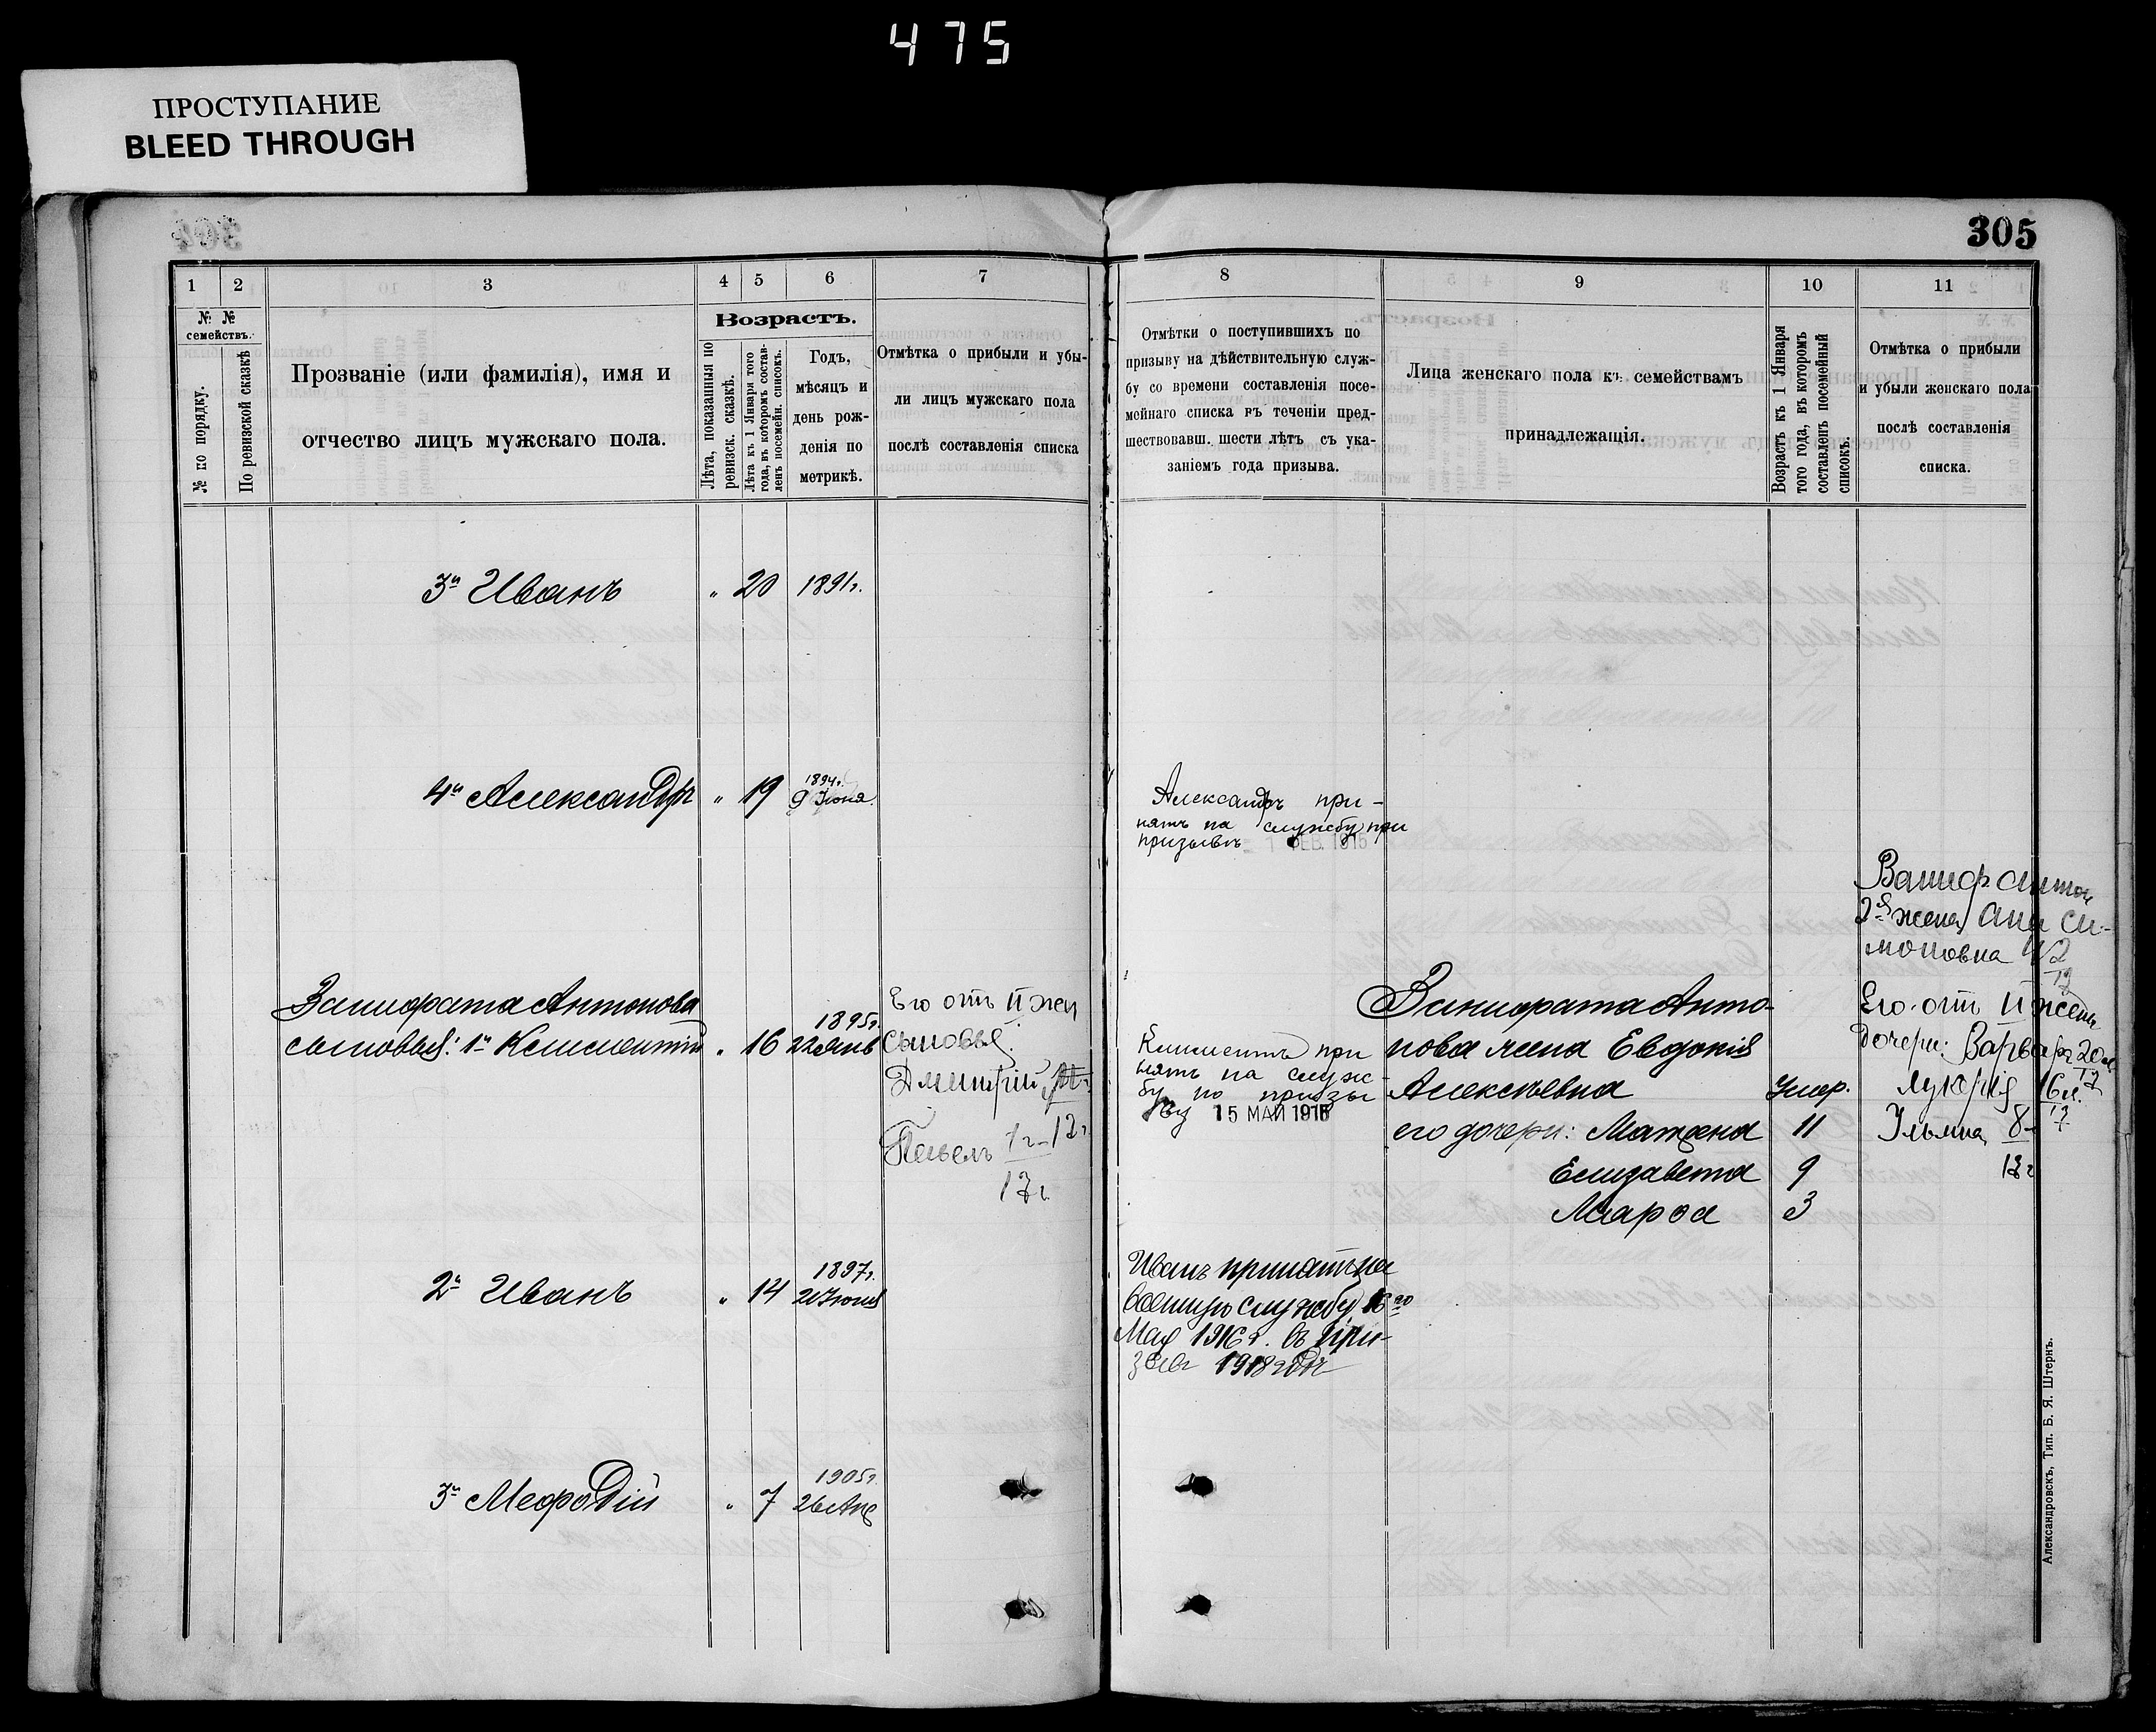 475
ПРОСТУПАНИЕ
BLEED THROUGH
305
1 2 3 4 5 6 7
№ № семействъ.
№ по порядку.
По ревизской сказкѣ
Прозваніе (или фамилія), имя и
отчество лицъ мужскаго пола.
Возрастъ.
Лѣта, показанныя по
ревизск. сказкѣ.
Лѣта къ 1 Января того
года, въ которомъ состав-
ленъ посемейн. списокъ.
Годъ,
мѣсяцъ и
день рож-
денія по
метрикѣ.
Отмѣтка о прибыли и убы-
ли лицъ мужскаго пола
послѣ составленія списка
3й Иванъ " 20 1891г.
4й Александръ " 19 1894г.
9 Іюня
Антонова
сыновья: 1й Климентій " 16 1895г.
22 Янв
Его отъ II жен
сыновья:
Дмитрій
Павелъ 1г. 12
2й Иванъ " 14 1897г.
1905г.
3й Мефодій " 7 26 Апр
8 9 10 11
Отмѣтки о поступившихъ по
призыву на дѣйствительную служ-
бу со времени составленія посе-
мейнаго списка въ теченіи пред-
шествовавш. шести лѣтъ съ ука-
заніемъ года призыва.
Лица женскаго пола къ семействамъ
принадлежащія.
Возрастъ къ 1 Января
того года, въ которомъ
составленъ посемейный
списокъ.
Отмѣтка о прибыли
и убыли женскаго пола
послѣ составленія
списка.
Александръ при-
нятъ на службу при
призывѣ 1 ФЕВ. 1915
2я жена Анна Си-
моновна 42
Его отъ II жены
дочери: Варвара 20
Лукерія 16 л.
8
Климентъ при
нятъ на служ-
бу по призы
ву 15 МАЙ 1915
Анто-
нова жена Евдокія
Алексѣевна Умер.
его дочери: Матрена 11
Елизавета 9
Марѳа 3
Иванъ принятъ на
военную службу 16го
Мая 1916г. въ при-
зывъ 1918 года
Александровскъ, Тип. Б. Я. Штернъ.